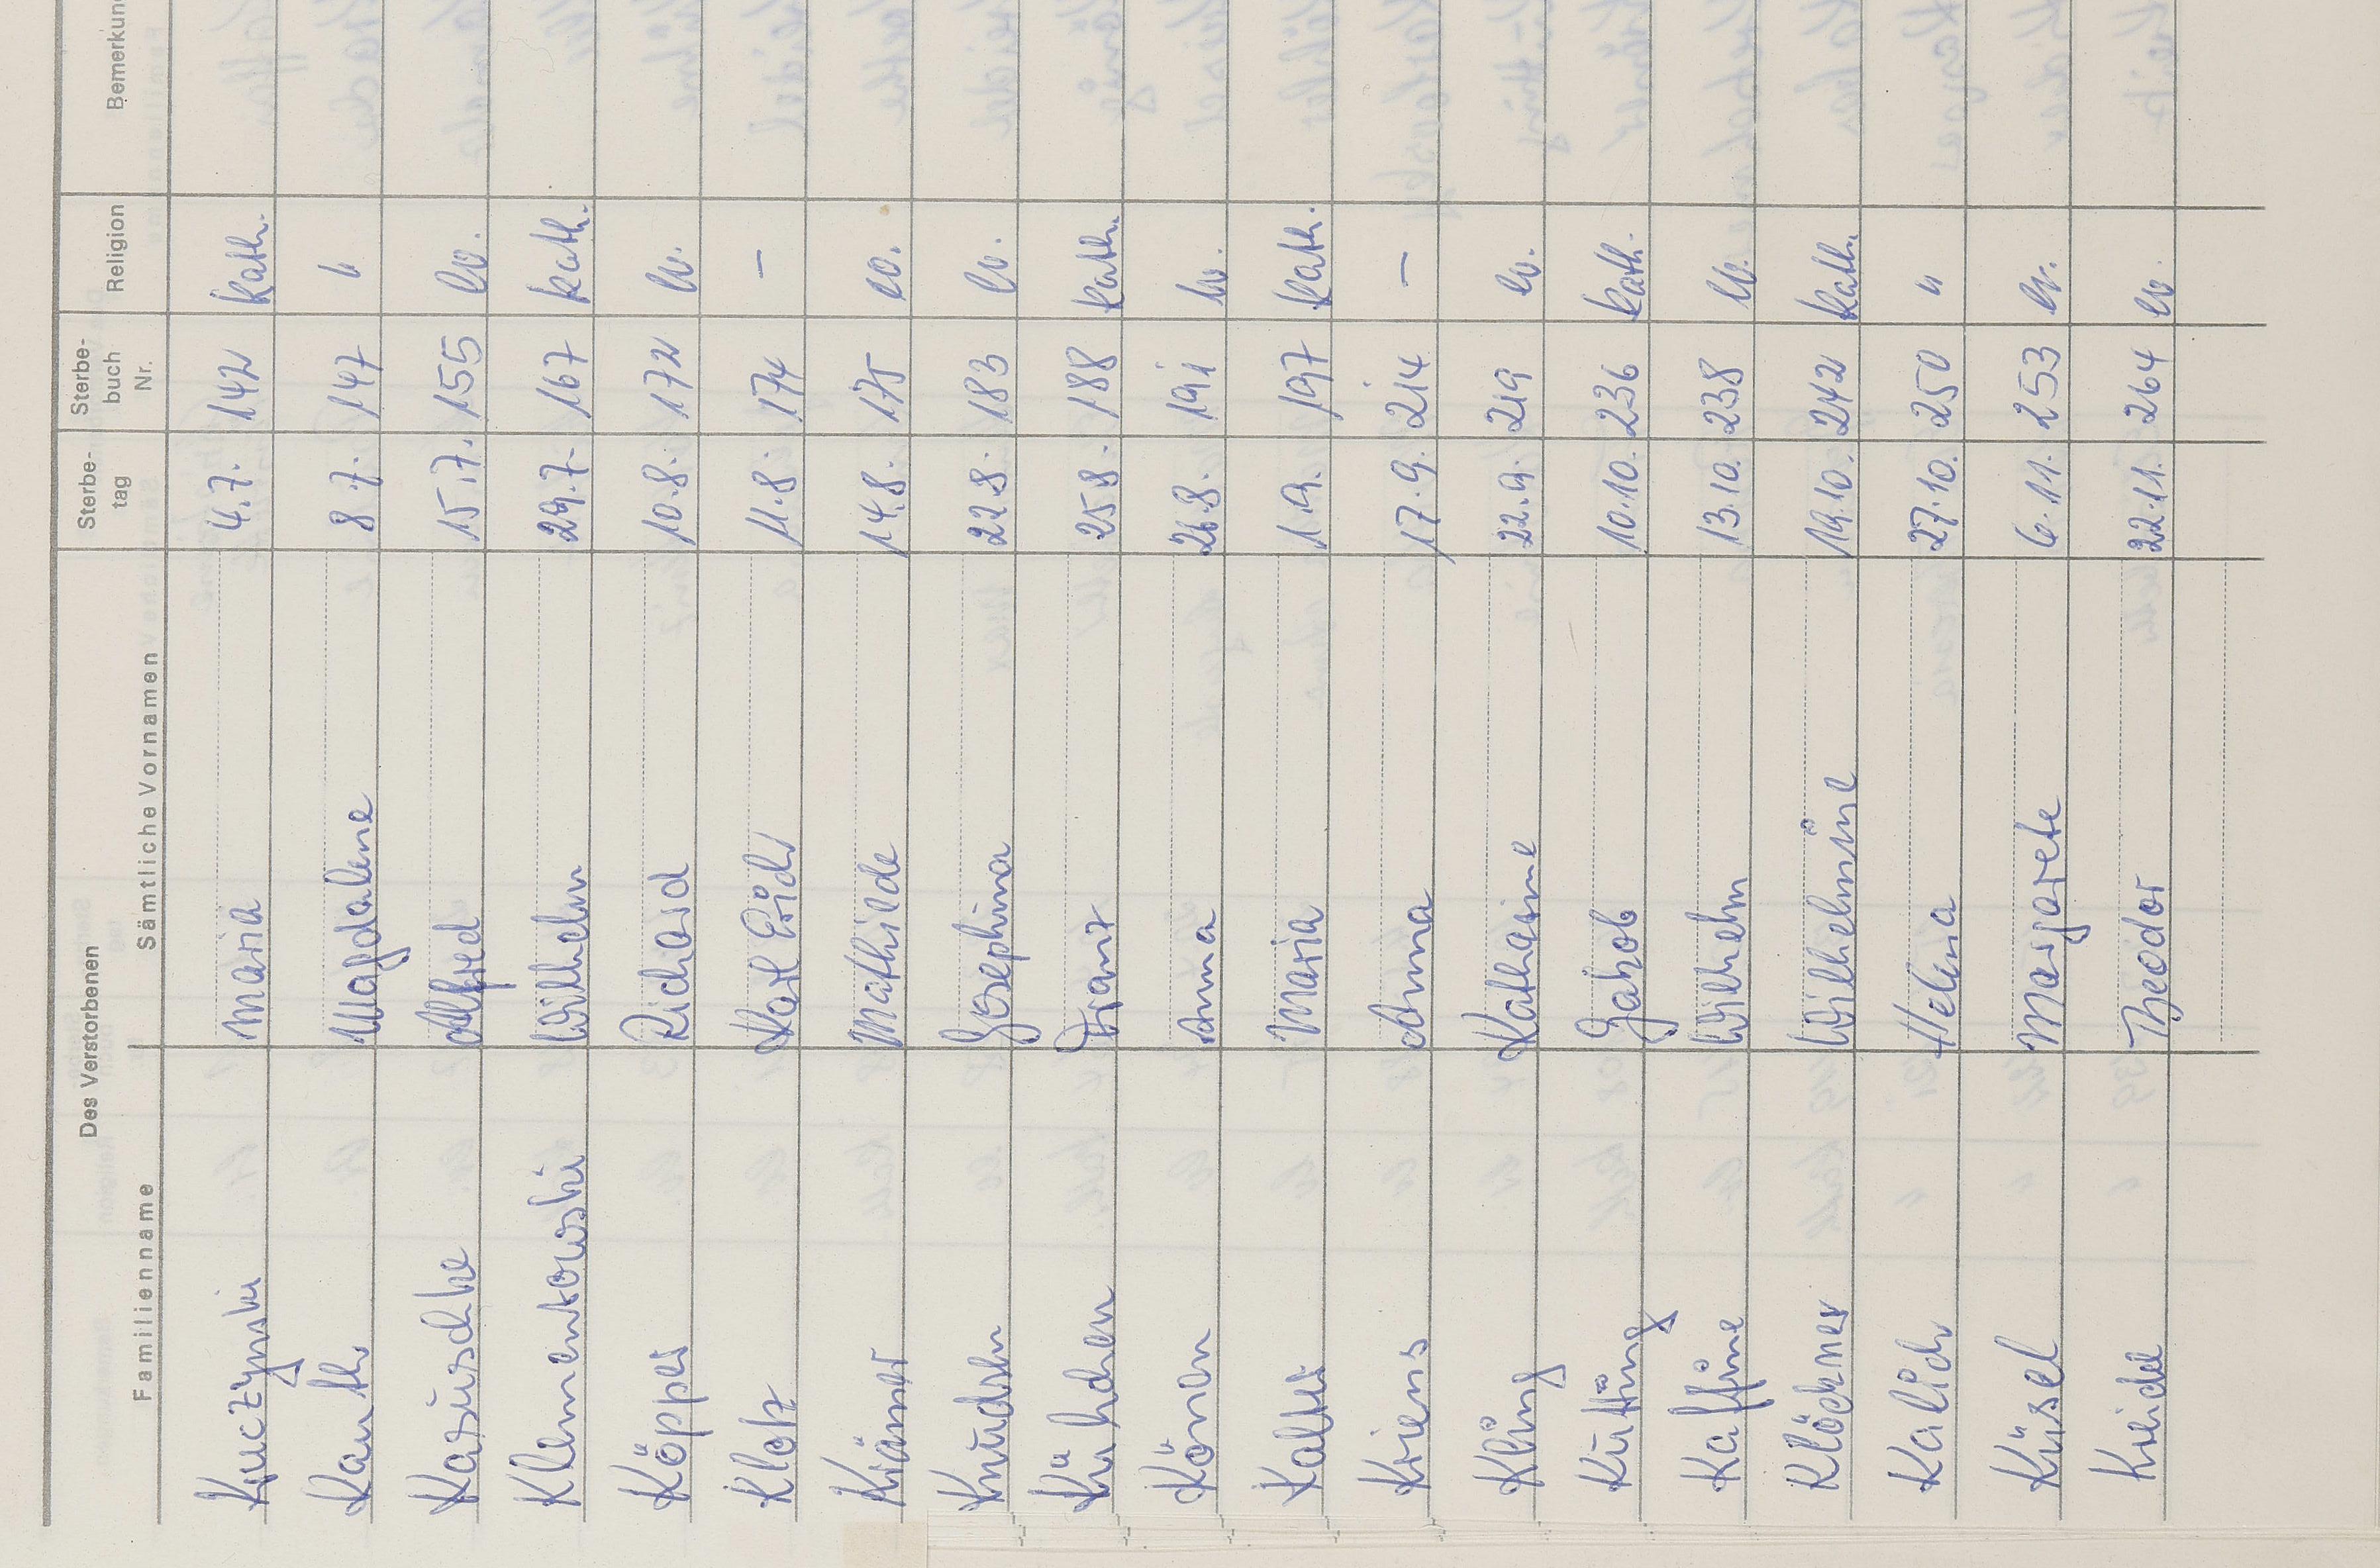 Des Verstorbenen Sterbe- Sterbe- Religion Bemerkun
tag buch
Nr.
Familienname Sämtliche Vornamen
Kuczynski Maria 4.7. 142 kath.
Kauth Magdalene 8.7. 147 "
Karuschke Alfred 15.7. 155 ev.
Klemenkowski Wilhelm 29.7. 167 kath.
Köpper Richard 10.8. 172 ev.
Klotz Karl Erich 11.8. 174 –
Krämer Mathilde 14.8. 175 ev.
Knudsen Josephina 22.8. 183 ev.
Küchchen Franz 25.8. 188 kath.
Können Anna 26.8. 191 ev.
Maria 1.9. 197 kath.
Kriens Anna 17.9. 214 –
Kling Katharine 22.9. 219 ev.
Kütting Jakob 10.10. 236 kath.
Kalfüne Wilhelm 13.10. 238 ev.
Klöckner Wilhelmine 19.10. 242 kath.
Kalich Helena 27.10. 250 "
Küsel Margarete 6.11. 253 ev.
Kreidel Theodor 22.11. 264 ev.